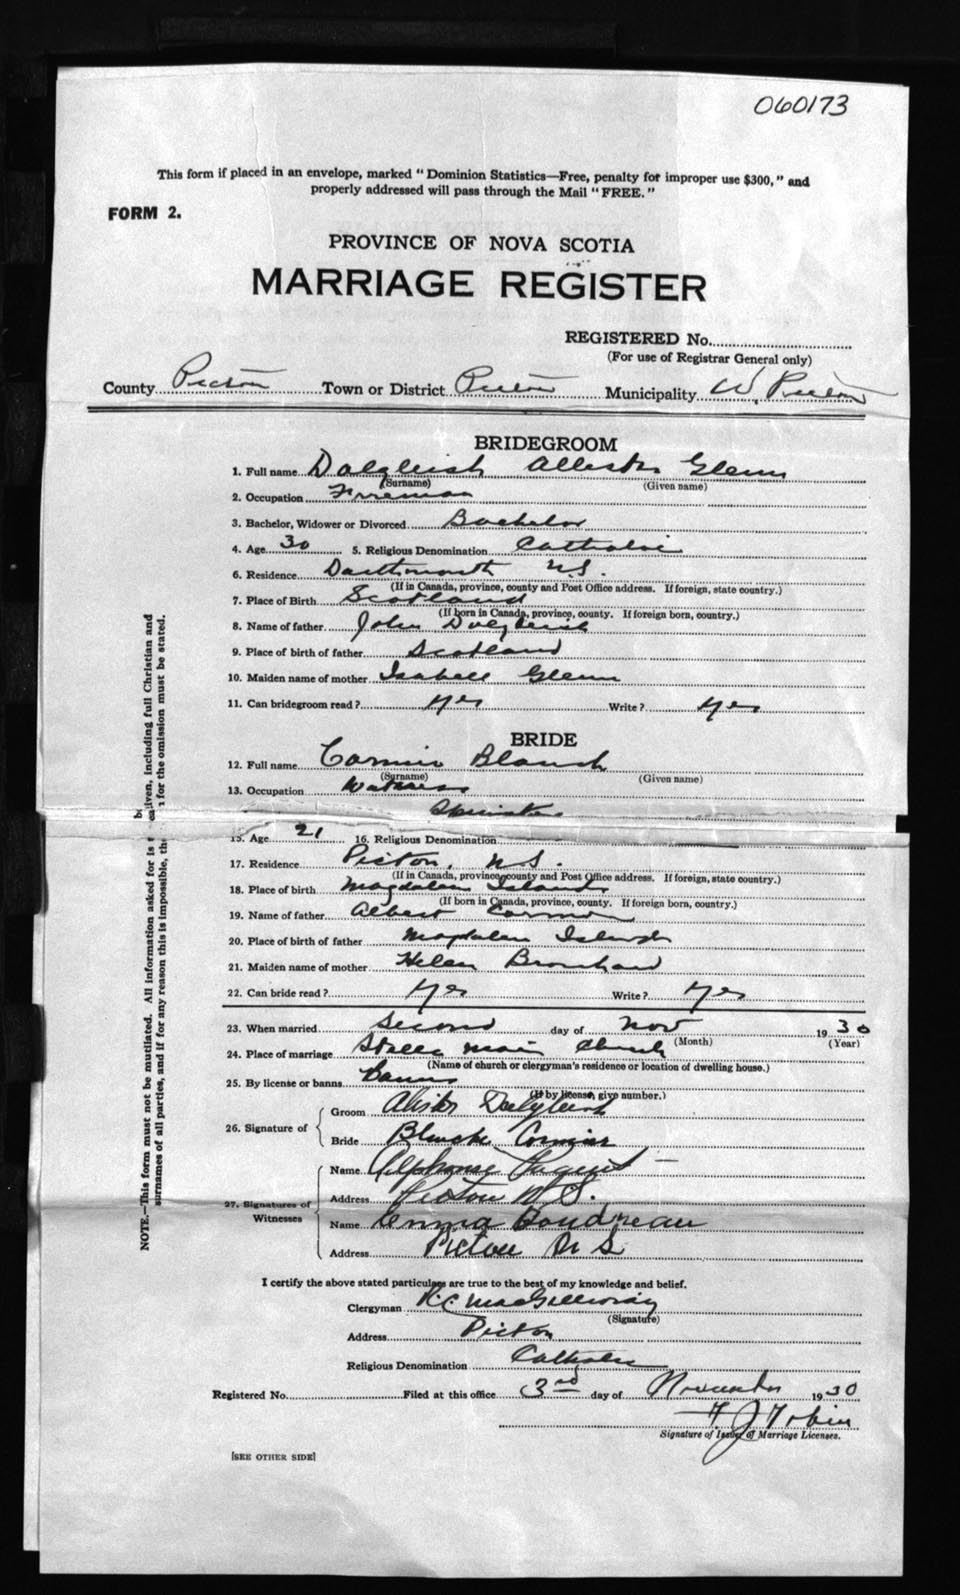 060173
This form if placed in an envelope, marked "Dominion Statistics—Free, penalty for improper use $300," and
properly addressed will pass through the Mail "FREE."
FORM 2.
PROVINCE OF NOVA SCOTIA
MARRIAGE REGISTER
REGISTERED No.
(For use of Registrar General only)
County Pictou Town or District Pictou Municipality W. Pictou
BRIDEGROOM
1. Full name Dalgleish Allister Glenn
(Surname) (Given name)
2. Occupation Fireman
3. Bachelor, Widower or Divorced Bachelor
4. Age 30 5. Religious Denomination Catholic
6. Residence Dartmouth N.S.
(If in Canada, province, county and Post Office address. If foreign, state country.)
7. Place of Birth Scotland
(If born in Canada, province, county. If foreign born, country.)
8. Name of father John Dalgleish
9. Place of birth of father Scotland
10. Maiden name of mother Isabell Glenn
11. Can bridegroom read? Yes Write? Yes
BRIDE
12. Full name Cormier Blanch
(Surname) (Given name)
13. Occupation Waitress
Spinster
15. Age 21 16. Religious Denomination
17. Residence Pictou, N.S.
(If in Canada, province, county and Post Office address. If foreign, state country.)
18. Place of birth Magdalen Islands
(If born in Canada, province, county. If foreign born, country.)
19. Name of father Albert Cormier
20. Place of birth of father Magdalen Islands
21. Maiden name of mother Helen
22. Can bride read? Yes Write? Yes
23. When married Second day of Nov 1930
(Month) (Year)
24. Place of marriage Stella Maris Church
(Name of church or clergyman's residence or location of dwelling house.)
25. By license or banns Banns
(If by license, give number.)
26. Signature of
Groom Dalgleish
Bride Blanche Cormier
27. Signatures of Witnesses
Name Alphonse
Address Pictou N.S.
Name Emma Boudreau
Address Pictou N S
I certify the above stated particulars are true to the best of my knowledge and belief.
Clergyman R.C. MacGillivray
(Signature)
Address Pictou
Religious Denomination Catholic
Registered No. Filed at this office 3rd day of November 1930
F. J Tobin
Signature of Issuer of Marriage Licenses.
[SEE OTHER SIDE]
NOTE.—This form must not be mutilated. All information asked for is given, including full Christian and
surnames of all parties, and if for any reason this is impossible, the for the omission must be stated.